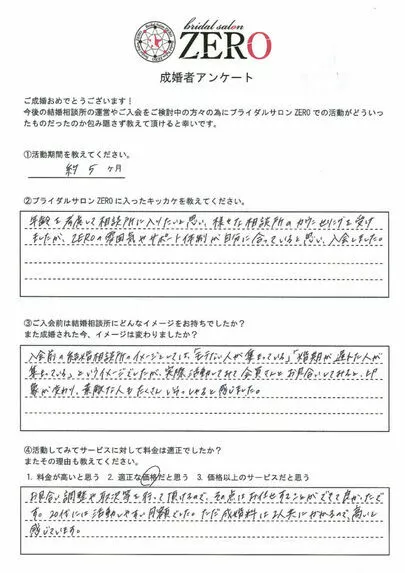 bridal salon
ZERO
成婚者アンケート
ご成婚おめでとうございます！
今後の結婚相談所の運営やご入会をご検討中の方々の為にブライダルサロンZEROでの活動がどういっ
たものだったのか包み隠さず教えて頂けると幸いです。
①活動期間を教えてください。
約5ヶ月
②ブライダルサロンZEROに入ったキッカケを教えてください。
年齢を考慮して相談所に入りたいと思い、様々な相談所のカウンセリングを受け
ましたが、ZEROの雰囲気やサポート体制が自分に合っていると思い、入会しました。
③ご入会前は結婚相談所にどんなイメージをお持ちでしたか？
また成婚された今、イメージは変わりましたか？
入会前の結婚相談所のイメージとしては、「モテない人が集まっている」「婚期が遅れた人が
集まっている」というイメージでしたが、実際活動してみて会員さんとお見合いしてみると、印
象が変わり、素敵な人もたくさんいらっしゃると感じました。
④活動してみてサービスに対して料金は適正でしたか？
またその理由も教えてください。
1. 料金が高いと思う 2. 適正な価格だと思う 3. 価格以上のサービスだと思う
お見合い調整や取次等を行って頂けるので、その点はお任せすることができて良かったで
す。20代には活動しやすい月額でした。ただ成婚料は2人共にかかるので、高いと
感じています。